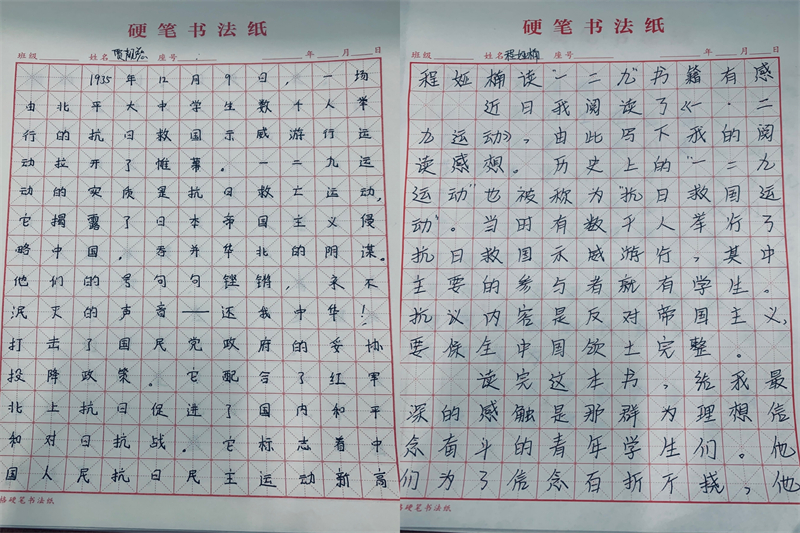 硬笔书法纸
班级 姓名 座号 年 月 日
1935年12月9日,一场
由北平大中学生数千人举
行的抗日救国示威游行运
动拉开了帷幕。一二九运
动的实质是抗日救亡运动,
它揭露了日本帝国主义侵
略中国,吞并华北的阴谋。
他们的号句句铿锵,永不
泯灭的声音——还我中华!
打击了国民党政府的妥协
投降政策。它配合了红军
北上抗日促进了国内和平
和对日抗战。它标志着中
国人民抗日民主运动新高
格硬笔书法纸
硬笔书法纸
班级 姓名程娅楠 座号 年 月 日
程娅楠读“一二九”书籍有感
近日我阅读了《一·二
九运动》,由此写下我的阅
读感想。历史上的“一二九
运动”也被称为“抗日救国运
动”。当时有数千人举行了
抗日救国示威游行,其中
主要的参与者就有学生。
抗议内容是反对帝国主义,
要保全中国领土完整。
读完这本书,给我最
深的感触是那群为理想信
念奋斗的青年学生们。他
们为了信念百折不挠,他
格硬笔书法纸